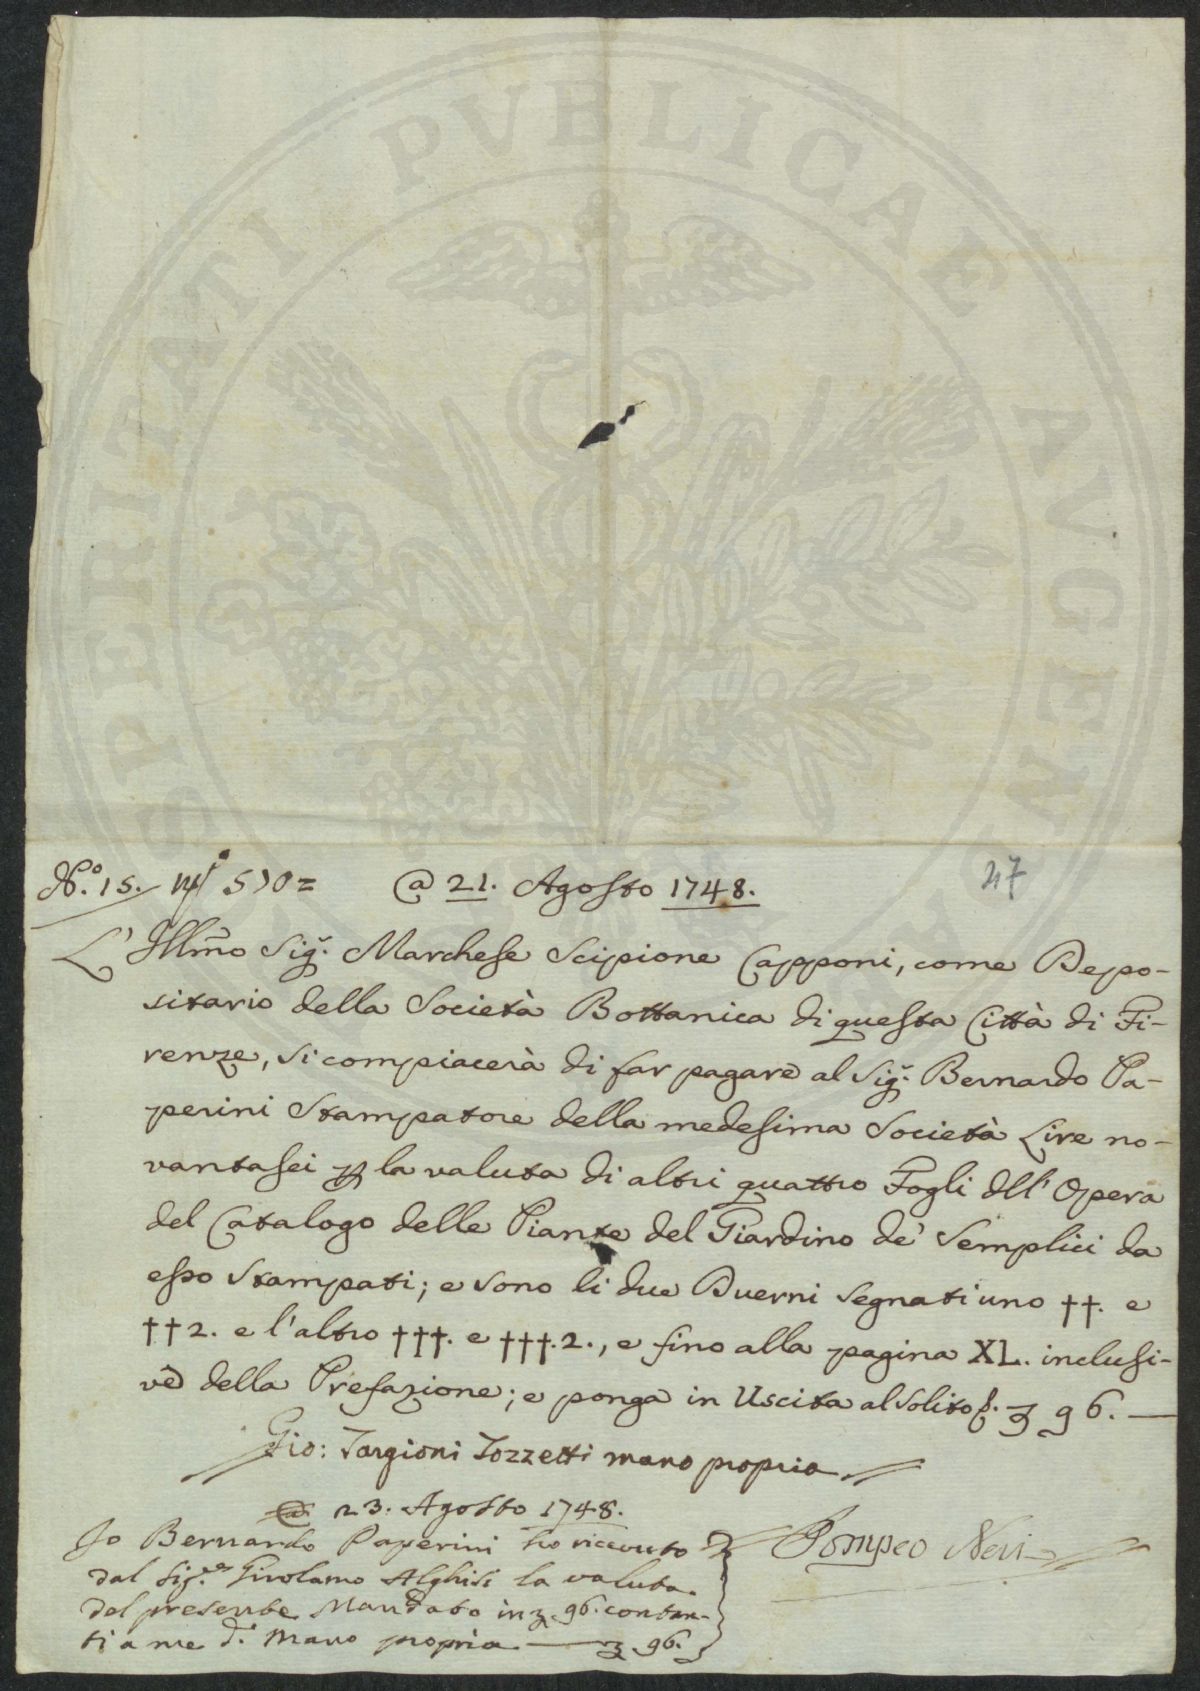 PROSPERITATI PUBLICAE AUGENDAE
N.° 15. 510 =
@ 21. Agosto 1748.
47
L' Illmo Sig.r Marchese Scipione Capponi, come Depo-
sitario della Società Bottanica di questa Città di Fi-
renze, si compiacerà di far pagare al Sig.r Bernardo Pa-
perini Stampatore della medesima Società Lire no-
vantasei p la valuta di altri quattro Fogli dll' Opera
del Catalogo delle Piante del Giardino de' Semplici da
esso Stampati; e sono li due Duerni segnati uno ††. e
††2. e l'altro †††. e †††.2., e fino alla pagina XL. inclusi-
vè della Prefazione; e ponga in Uscita al solito 96. —
Gio: Targioni Tozzetti mano propria
@ 23. Agosto 1748.
Io Bernardo Paperini ho ricevuto
dal Sig.re Girolamo Alghisi la valuta
del presente Mandato in 96. contan-
ti a me d.o mano propria — 96.
Pompeo Neri